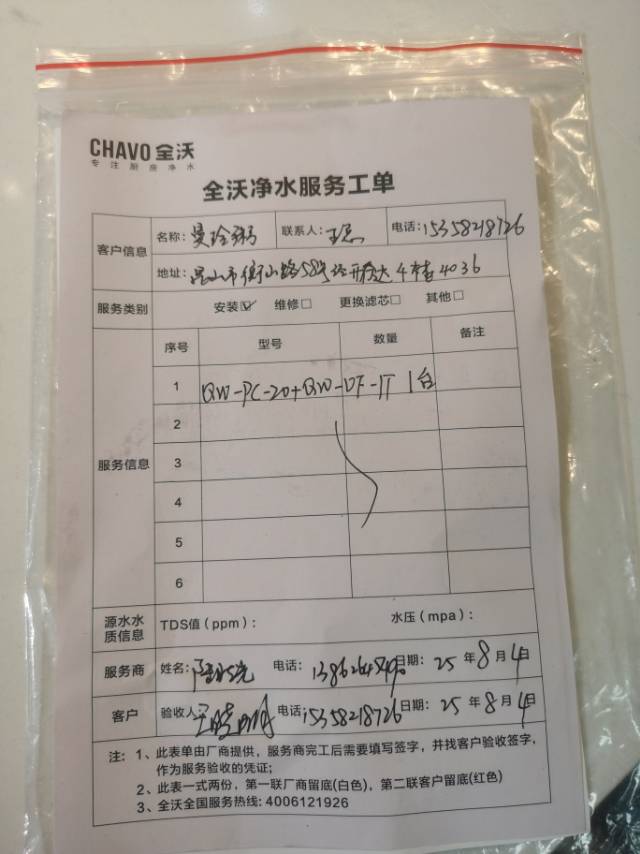 CHAVO 全沃
专注厨房净水
全沃净水服务工单
客户信息
名称: 曼玲粥 联系人: 王总 电话: 15358218726
地址: 昆山市衡山路58号 4栋 4036
服务类别 安装☑ 维修□ 更换滤芯□ 其他□
服务信息
序号 型号 数量 备注
1 QW-PC-20+QW-UF-1T 1台
2
3
4
5
6
源水水质信息 TDS值(ppm): 水压(mpa):
服务商 姓名: 电话: 日期: 25年8月4日
客户 验收人 电话 15358218726 日期: 25年8月4日
注: 1、此表单由厂商提供,服务商完工后需要填写签字,并找客户验收签字,
作为服务验收的凭证;
2、此表一式两份,第一联厂商留底(白色),第二联客户留底(红色)
3、全沃全国服务热线: 4006121926